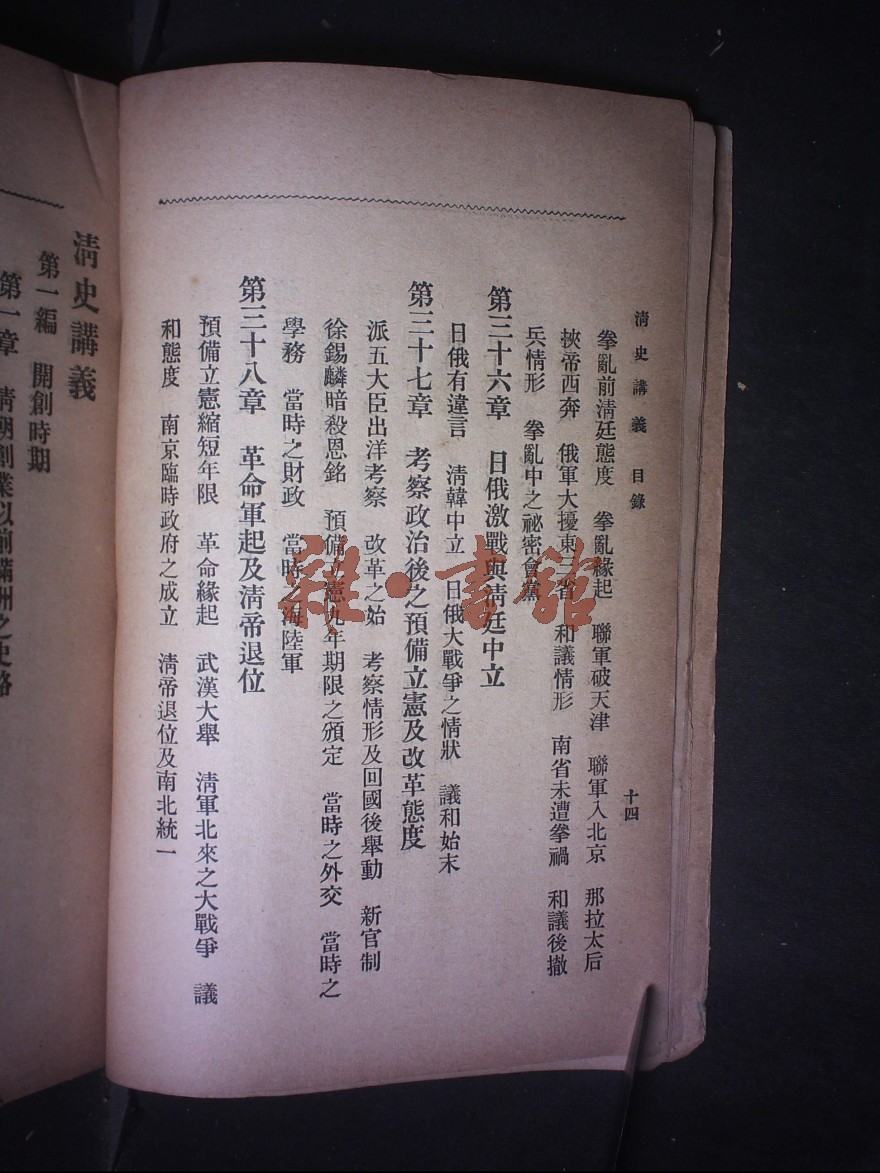 清史講義 目錄 十四
拳亂前清廷態度 拳亂緣起 聯軍破天津 聯軍入北京 那拉太后
挾帝西奔 俄軍大擾東三省 和議情形 南省未遭拳禍 和議後撤
兵情形 拳亂中之祕密會黨
第三十六章 日俄激戰與清廷中立
日俄有違言 清韓中立 日俄大戰爭之情狀 議和始末
第三十七章 考察政治後之預備立憲及改革態度
派五大臣出洋考察 改革之始 考察情形及回國後舉動 新官制
徐錫麟暗殺恩銘 預備立憲九年期限之頒定 當時之外交 當時之
學務 當時之財政 當時之海陸軍
第三十八章 革命軍起及清帝退位
預備立憲縮短年限 革命緣起 武漢大舉 清軍北來之大戰爭 議
和態度 南京臨時政府之成立 清帝退位及南北統一
清史講義
第一編 開創時期
第一章 清朝創業以前滿洲之史略
雜·書館